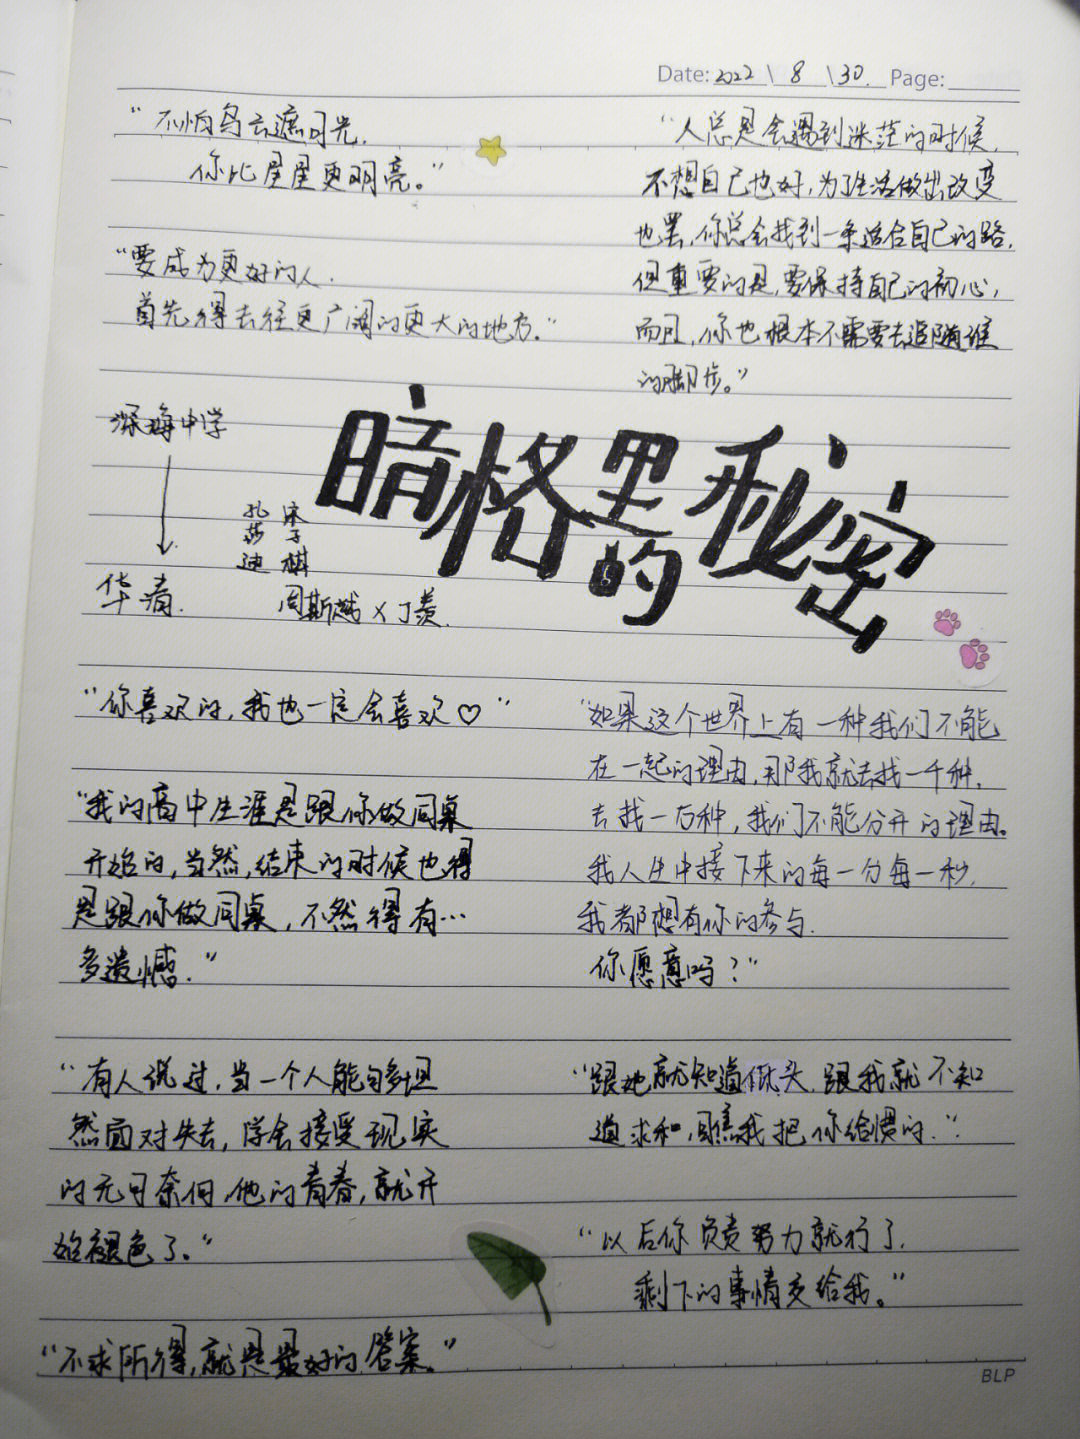 Date: 2022 \ 8 \ 30. Page:
“不怕乌云遮月光,
你比星星更明亮。”
“要成为更好的人,
首先得去往更广阔的更大的地方.”
“人总是会遇到迷茫的时候,
不想自己也好,为了生活做出改变
也罢,你总会找到一条适合自己的路,
但重要的是,要保持自己的初心,
而且,你也根本不需要去追随谁
的脚步。”
深海中学
华清.
孔莎迪
宋子棋
周斯越×丁羡.
暗格里的秘密
“你喜欢的,我也一定会喜欢♡”
“我的高中生涯是跟你做同桌
开始的,当然,结束的时候也得
是跟你做同桌,不然得有…
多遗憾.”
“如果这个世界上有一种我们不能
在一起的理由,那我就去找一千种,
去找一万种,我们不能分开的理由。
我人生中接下来的每一分每一秒,
我都想有你的参与.
你愿意吗?”
“有人说过,当一个人能够坦
然面对失去,学会接受现实
的无可奈何,他的青春,就开
始褪色了.”
“跟她就知道低头,跟我就不知
道求和,瞧我把你给惯的.”
“以后你负责努力就行了,
剩下的事情交给我。”
“不求所得,就是最好的答案.”
BLP